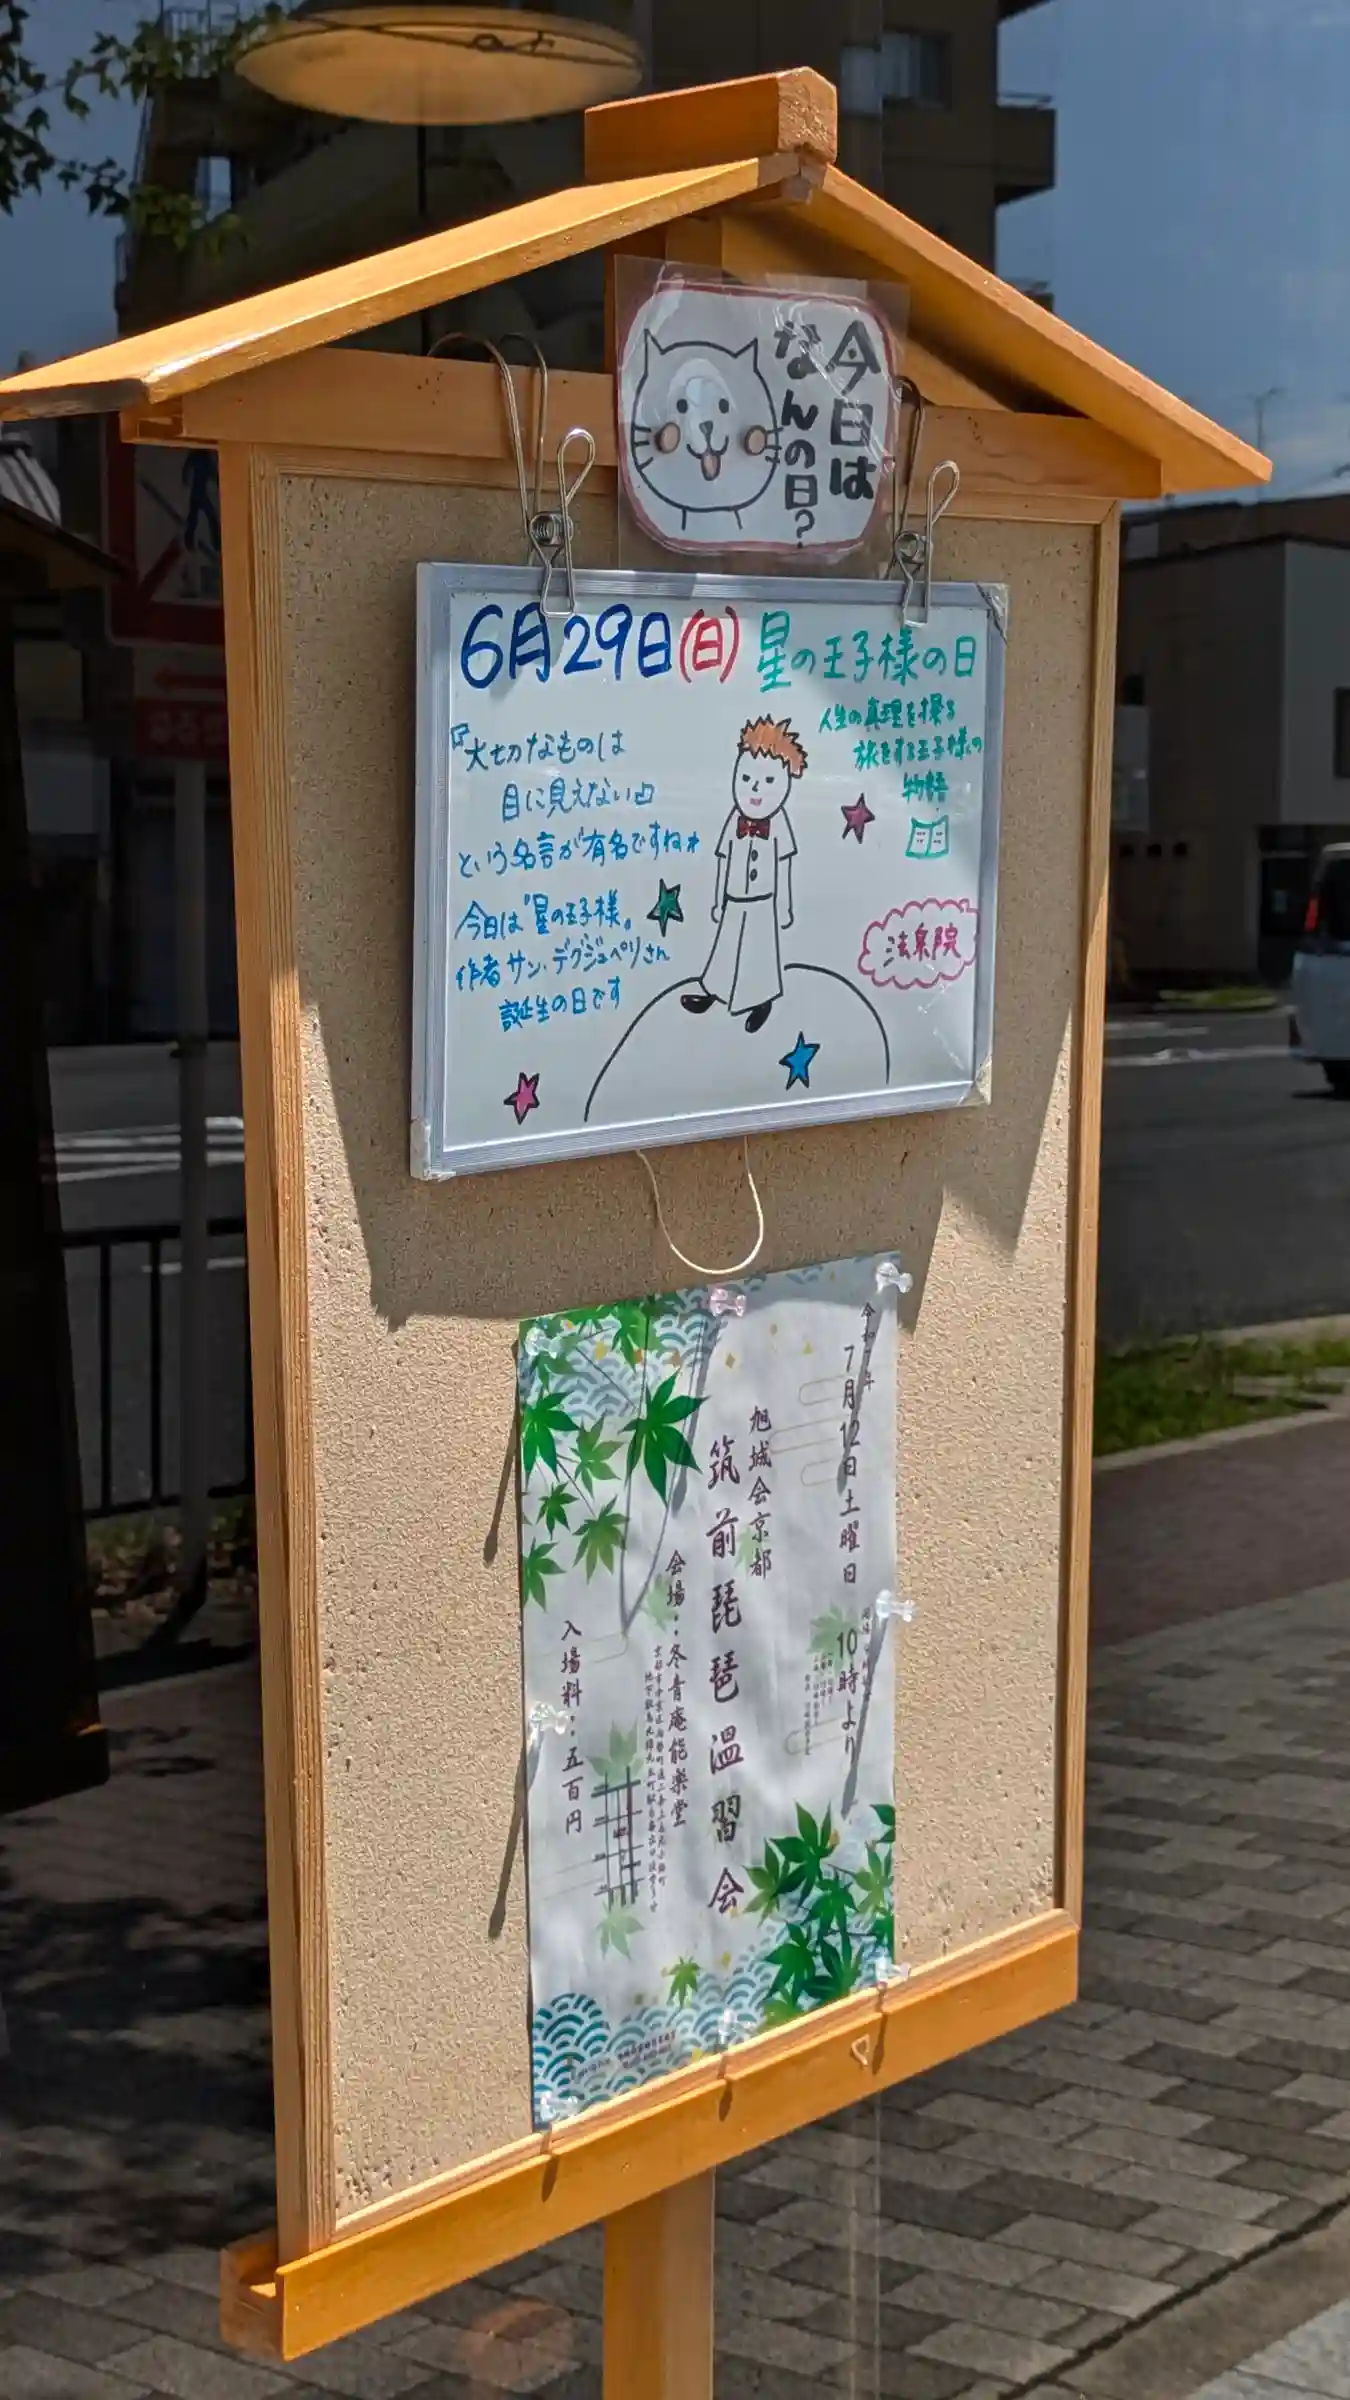 今日は
なんの日?
6月29日(日) 星の王子様の日
『大切なものは
目に見えない』
という名言が有名ですね
今日は『星の王子様』
作者サン・デグジュペリさん
誕生の日です
人生の真理を探る
旅をする王子様の
物語
法泉院
7月12日土曜日 10時より
旭城会京都
筑前琵琶温習会
会場・冬青庵能楽堂
入場料・五百円